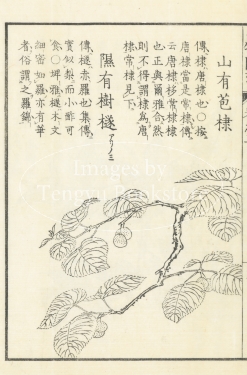 山有苞棣
傳棣唐棣也○按
唐棣當是常棣傳
云唐棣栘常棣棣
也正與爾雅合然
則不得謂棣為唐
棣常棣見下
隰有樹檖
傳檖赤羅也集傳
實似梨而小酢可
食○埤雅檖木文
細密如羅亦有華
者俗謂之羅錦
Images by